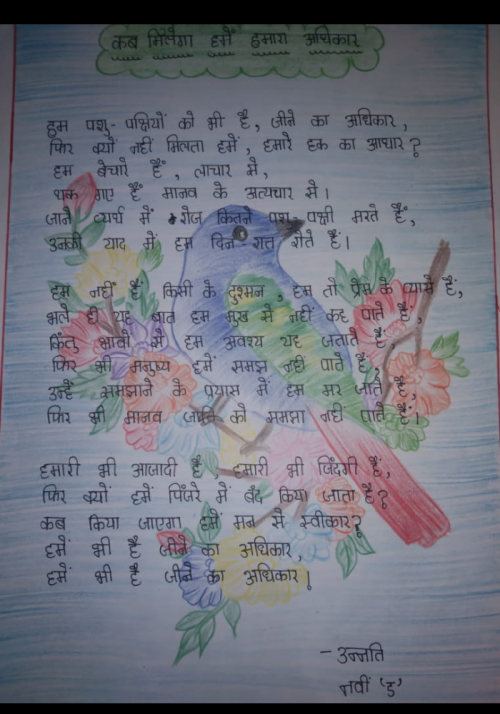 कब मिलेगा हमें हमारा अधिकार
हम पशु-पक्षियों को भी है, जीने का अधिकार,
फिर क्यों नहीं मिलता हमें, हमारे हक का आधार?
हम बेचारे हैं, लाचार से,
थक गए हैं मानव के अत्यचार से।
जाने व्यर्थ में रोज कितने पशु-पक्षी मरते हैं,
उनकी याद में हम दिन रात रोते हैं।
हम नहीं हैं किसी के दुश्मन, हम तो प्रेम के प्यासे हैं,
भले ही यह बात हम मुख से नहीं कह पाते हैं,
किंतु भावों से हम अवश्य यह जताते हैं,
फिर भी मनुष्य हमें समझ नहीं पाते हैं,
उन्हें समझाने के प्रयास में हम मर जाते हैं,
फिर भी मानव जाति को समझा नहीं पाते हैं।
हमारी भी आजादी है, हमारी भी जिंदगी हैं,
फिर क्यों हमें पिंजरे में बंद किया जाता है?
कब किया जाएगा हमें मन से स्वीकार?
हमें भी है जीने का अधिकार,
हमें भी है जीने का अधिकार।
- उन्नति
नवीं 'ड'